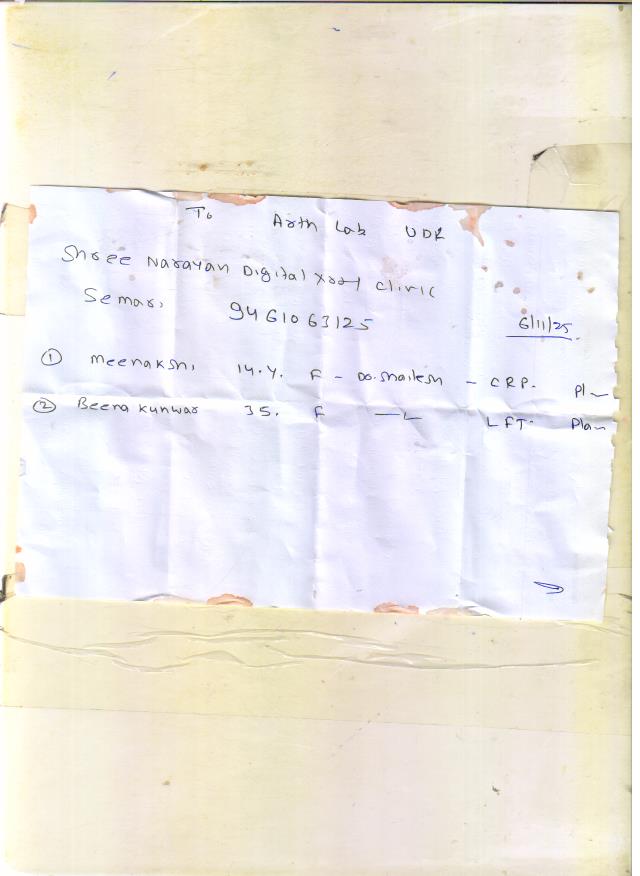 To Arth Lab UDR
Shree Narayan Digital Xray clinic
Semari 9461063125 6/11/25.
① Meenakshi 14.Y. F - Do. Shailesh - CRP. Pl
② Beena Kunwar 35. F —L LFT. Plan